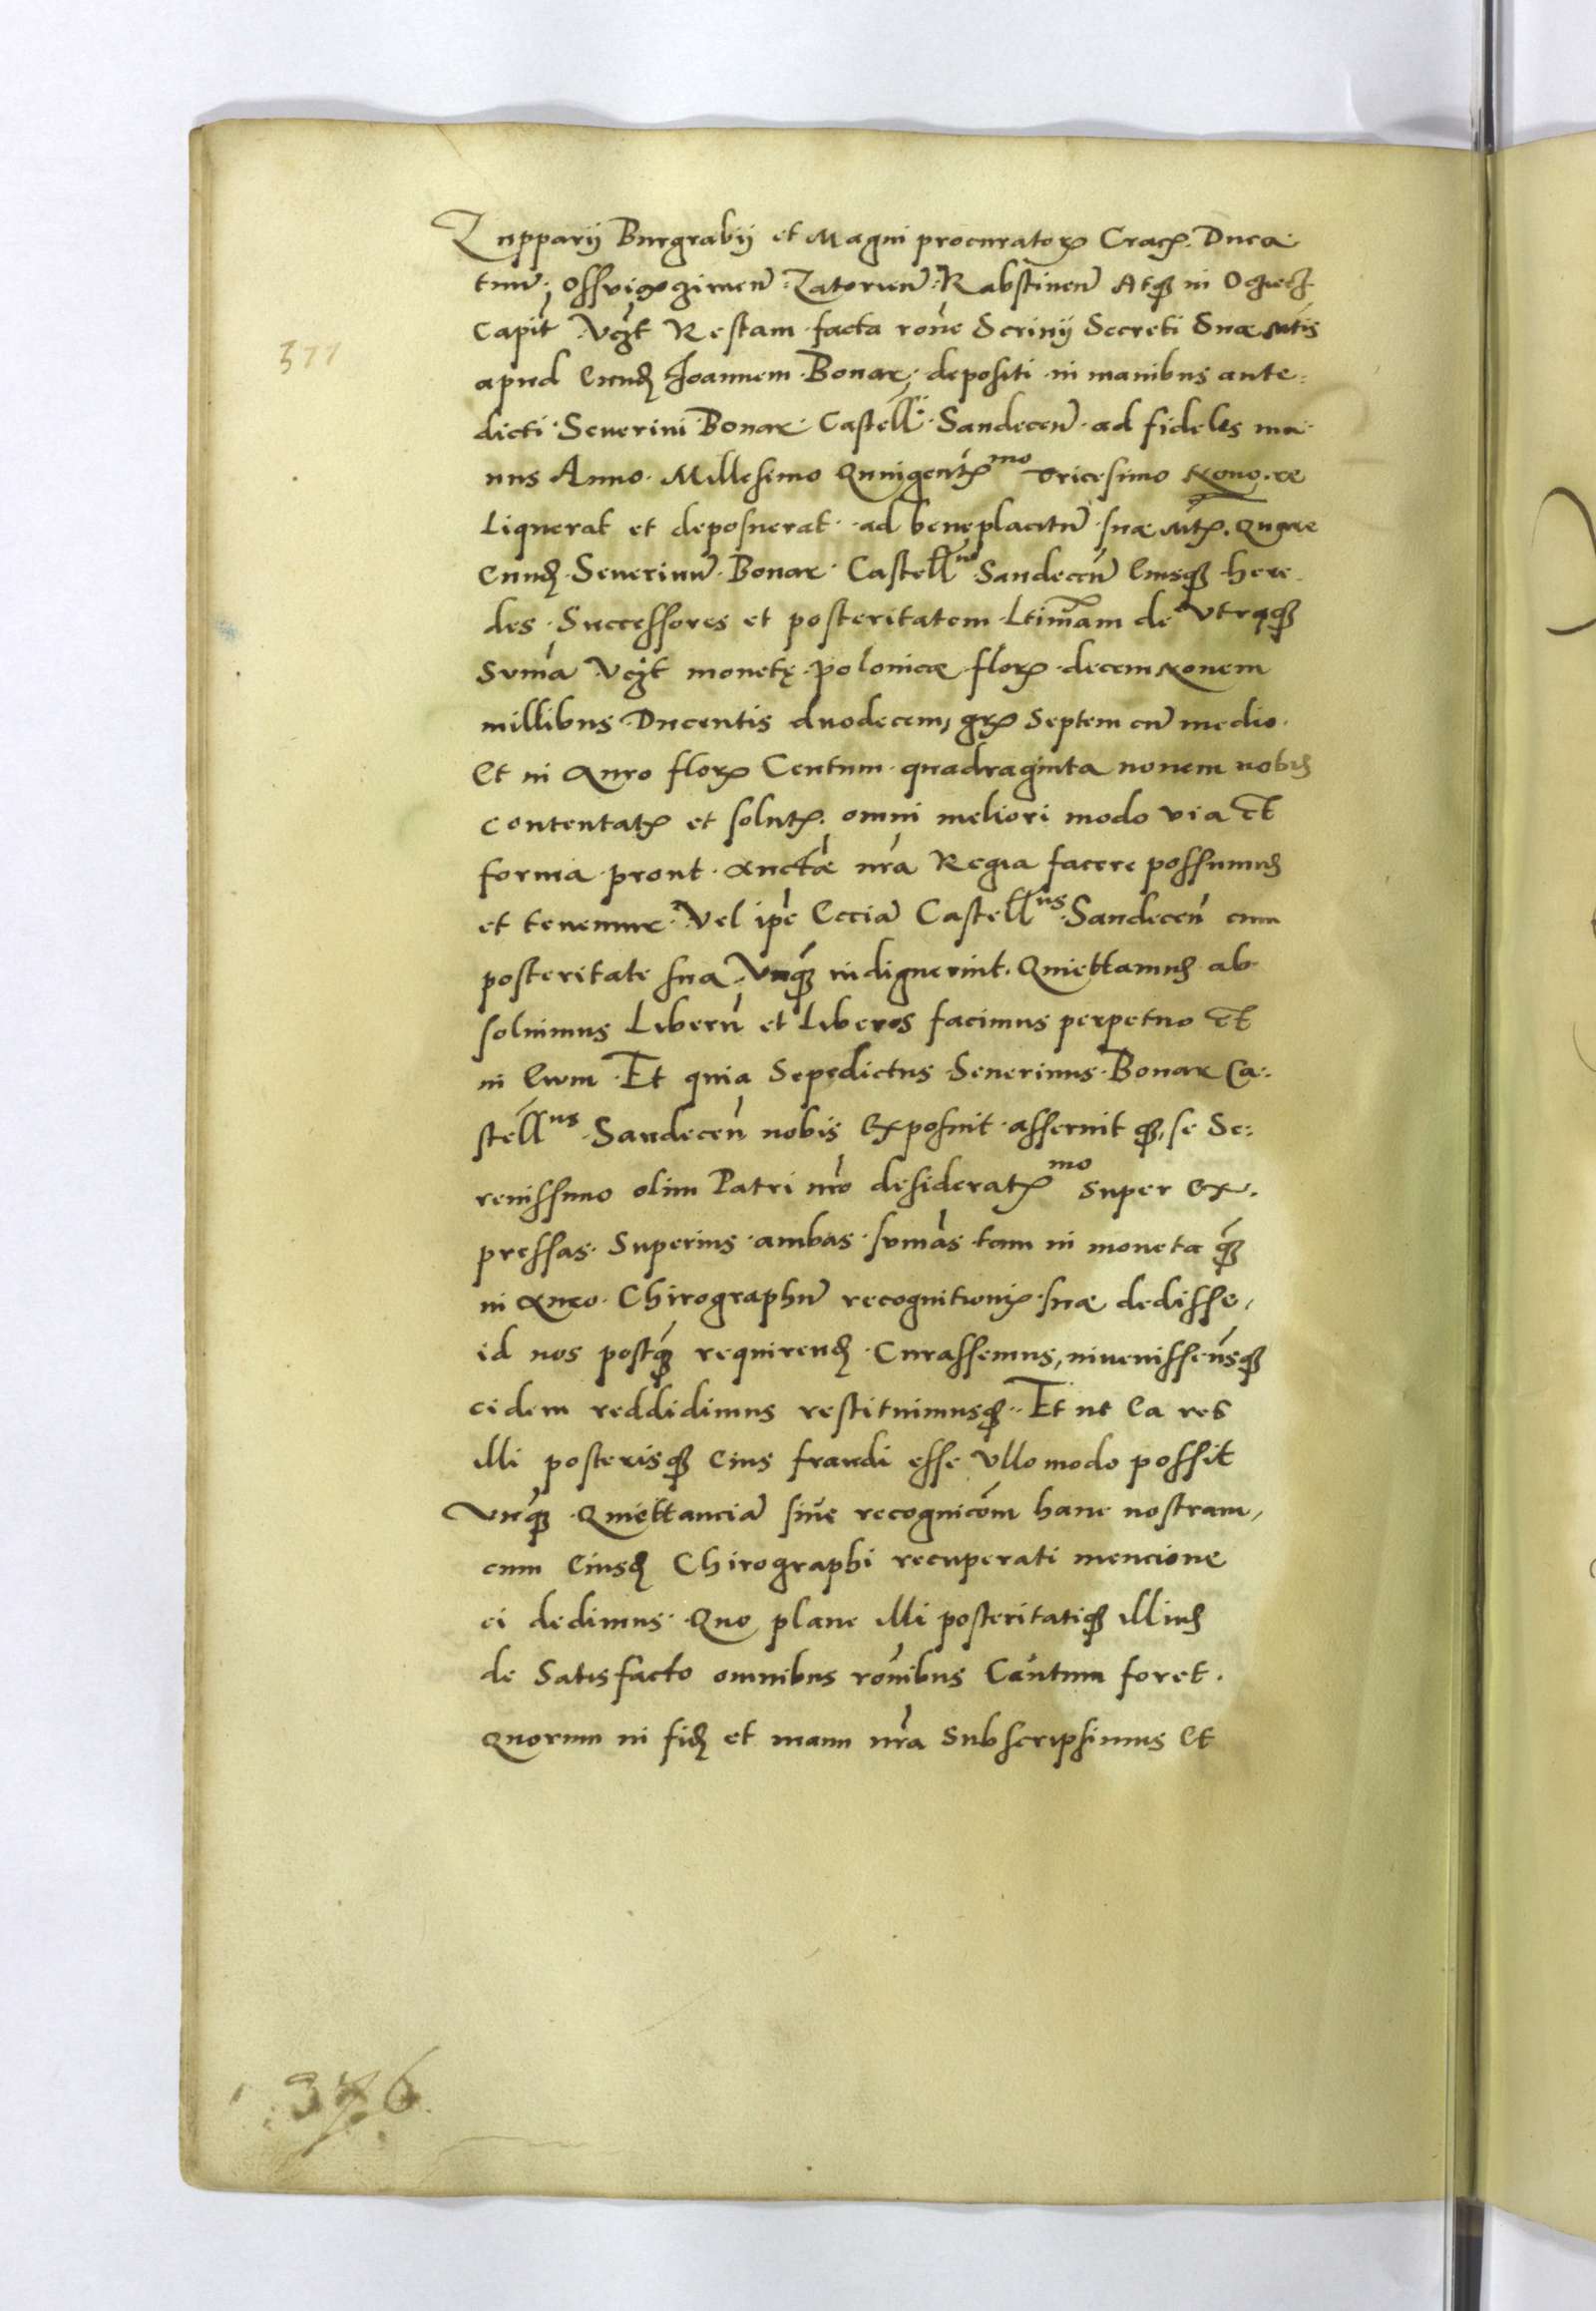 Zupparij Burgrabij et Magni procuratoꝝ Cracꝭ. Duca-
tuū: Ossvijeczimeñ: Zatorieñ: Rabstineñ Atqꝫ in Ogrodz.
Capit̃ Vcꝫt Restam facta rone Scrinij Secreti Suæ Mtis
apud Eund Joannem Bonar: depositi in manibus ante-
dicti Severini Bonar Castell Sandeceñ ad fideles ma-
nus Anno Millesimo Quingentꝭmo tricesimo Nono re
liquerat et deposuerat ad beneplacitū suæ Mtꝭ. Quare
Eund Severinū Bonar Castellnū Sandeceñ Eiusqꝫ here-
des Successores et posteritatem Ltimam de utraqꝫ
Suma Vcꝫt monetę polonicæ floꝝ decem Novem
millibus Ducentis duodecem, grꝭ Septem cū medio
Et in Auro floꝝ Centum quadraginta novem nobis
contentatꝭ et solutꝭ. omni meliori modo via et
forma prout Auctãe nrã Regia facere possumus
et tenemur Vel ipẽ Eciã Castellus Sandeceñ cum
posteritate sua Unqꝫ indiguerint. Quiettamus ab-
soluimus Liberū et Liberos facimus perpetuo et
in Evum Et quia Sepedictus Severinus Bonar Ca-
stellus Sandeceñ nobis Exposuit asseruit qꝫ, se Se-
renissimo olim Patri nrõ desideratꝭmo Super Ex-
pressas Superius ambas sumãs tam in moneta qꝫ
in Auro Chirographū recognitionꝭ suæ dedisse,
id nos postqꝫ requirend Curassemus, inuenissemusqꝫ
eidem reddidimus restituimusqꝫ. Et ne Ea res
illi posterisqꝫ Eius fraudi esse Ullo modo possit
Unqꝫ Quiettanciã sive recognicõm hanc nostram,
cum Eiusd Chirographi recuperati mencione
ei dedimus Quo plane illi posteritatiqꝫ illius
de Satisfacto omnibus rõnibus Cautum foret.
Quorum in fid et manu nrã Subscripsimus Et
377
376